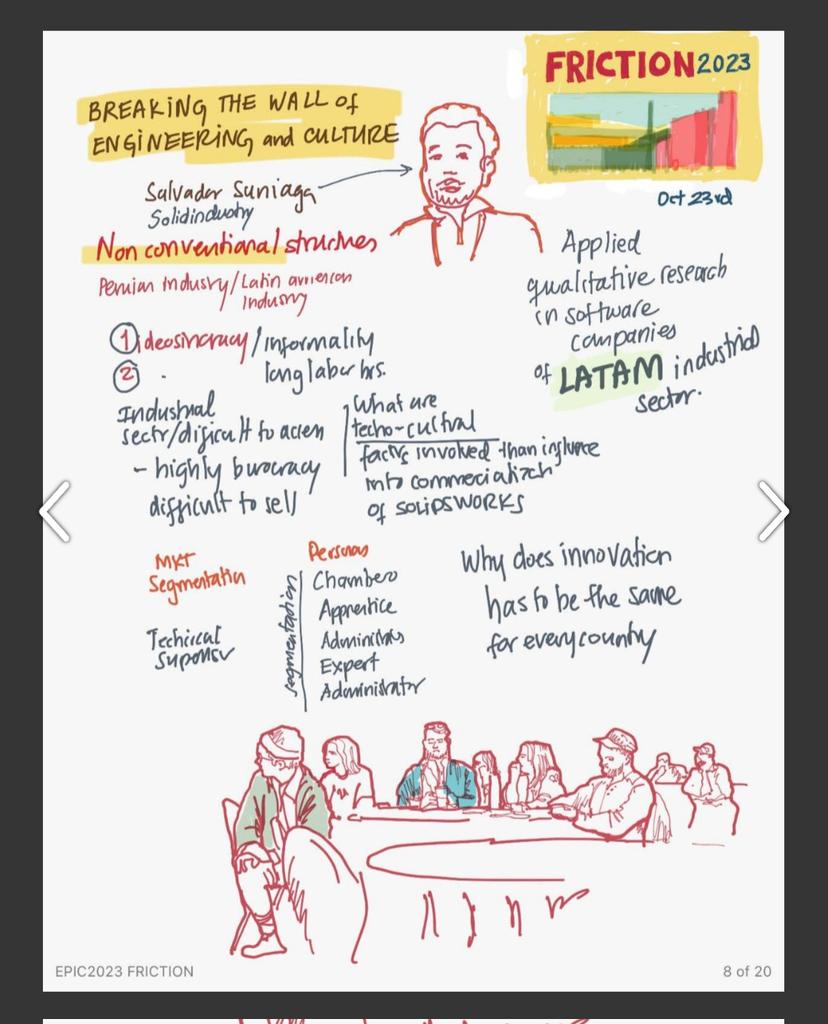 FRICTION 2023
Oct 23rd
BREAKING THE WALL of
ENGINEERING and CULTURE
Salvador Suniaga
Solidindustry
Non conventional structures
Peruvian Industry/Latin american
Industry
Applied
qualitative research
in software
companies
of LATAM industrial
sector.
1 ideosincracy/informality
2 . long labor hrs.
Industrial
sectr/dificult to access
- highly burocracy
difficult to sell
What are
techo-cultral
factrs involved than influnce
into commercializatn
of SOLIDSWORKS
MKT
Segmentation
Technical
segmentation
Personas
Chambero
Apprentice
Expert
Administrator
Why does innovation
has to be the same
for every country
EPIC2023 FRICTION
8 of 20